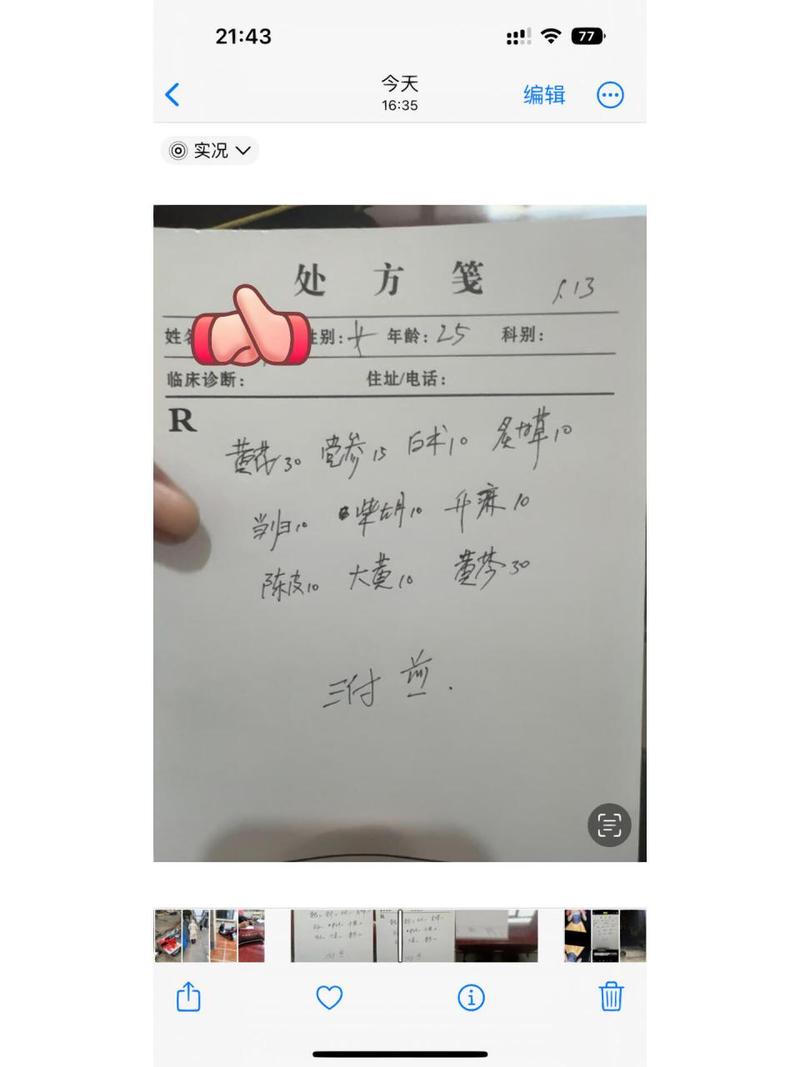 21:43
77
今天
16:35
编辑
实况
处方笺
5.13
性别:女 年龄:25 科别:
临床诊断: 住址/电话:
R
黄芪30 党参15 白术10 炙甘草10
当归10 柴胡10 升麻10
陈皮10 大黄10 黄芩30
三付 煎.